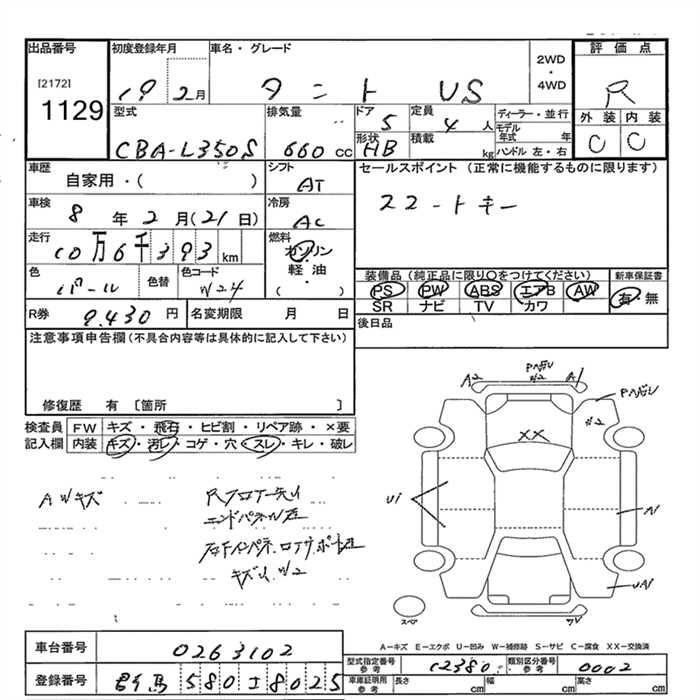 出品番号
[2172]
1129
初度登録年月
19 2月
車名・グレード
タント US
2WD
・
4WD
評価点
R
外装 内装
C C
型式
CBA-L350S
排気量
660 cc
ドア
5
定員
4 人
ディーラー・並行
モデル年式 年
ハンドル 左・右
形状
HB
積載
kg
車歴
自家用・( )
シフト
AT
セールスポイント (正常に機能するものに限ります)
スマートキー
車検
8 年 2 月 (21 日)
冷房
AC
走行
10万6千393 km
燃料
ガソリン
・
軽・油
( )
色
パール
色替
色コード
W24
装備品 (純正品に限り○をつけてください)
PS PW ABS エアB AW
SR ナビ TV カワ
新車保証書
有・無
R券
9,430 円
名変期限 月 日
後日品
注意事項申告欄 (不具合内容等は具体的に記入して下さい)
修復歴 有 [箇所 ]
検査員
記入欄
FW キズ・飛石・ヒビ割・リペア跡・×要
内装 キズ・汚レ・コゲ・穴・スレ・キレ・破レ
AWキズ
Rフロアー
エンドパネル
キズ W2
A2
W2
A1
XX
U1
A1
UA1
スペア
A−キズ E−エクボ U−凹み W−補修跡 S−サビ C−腐食 XX−交換済
車台番号
0263102
登録番号
580 8025
型式指定番号
参考
12380
類別区分番号
参考
0002
車庫証明用
参考
長さ cm
幅 cm
高さ cm